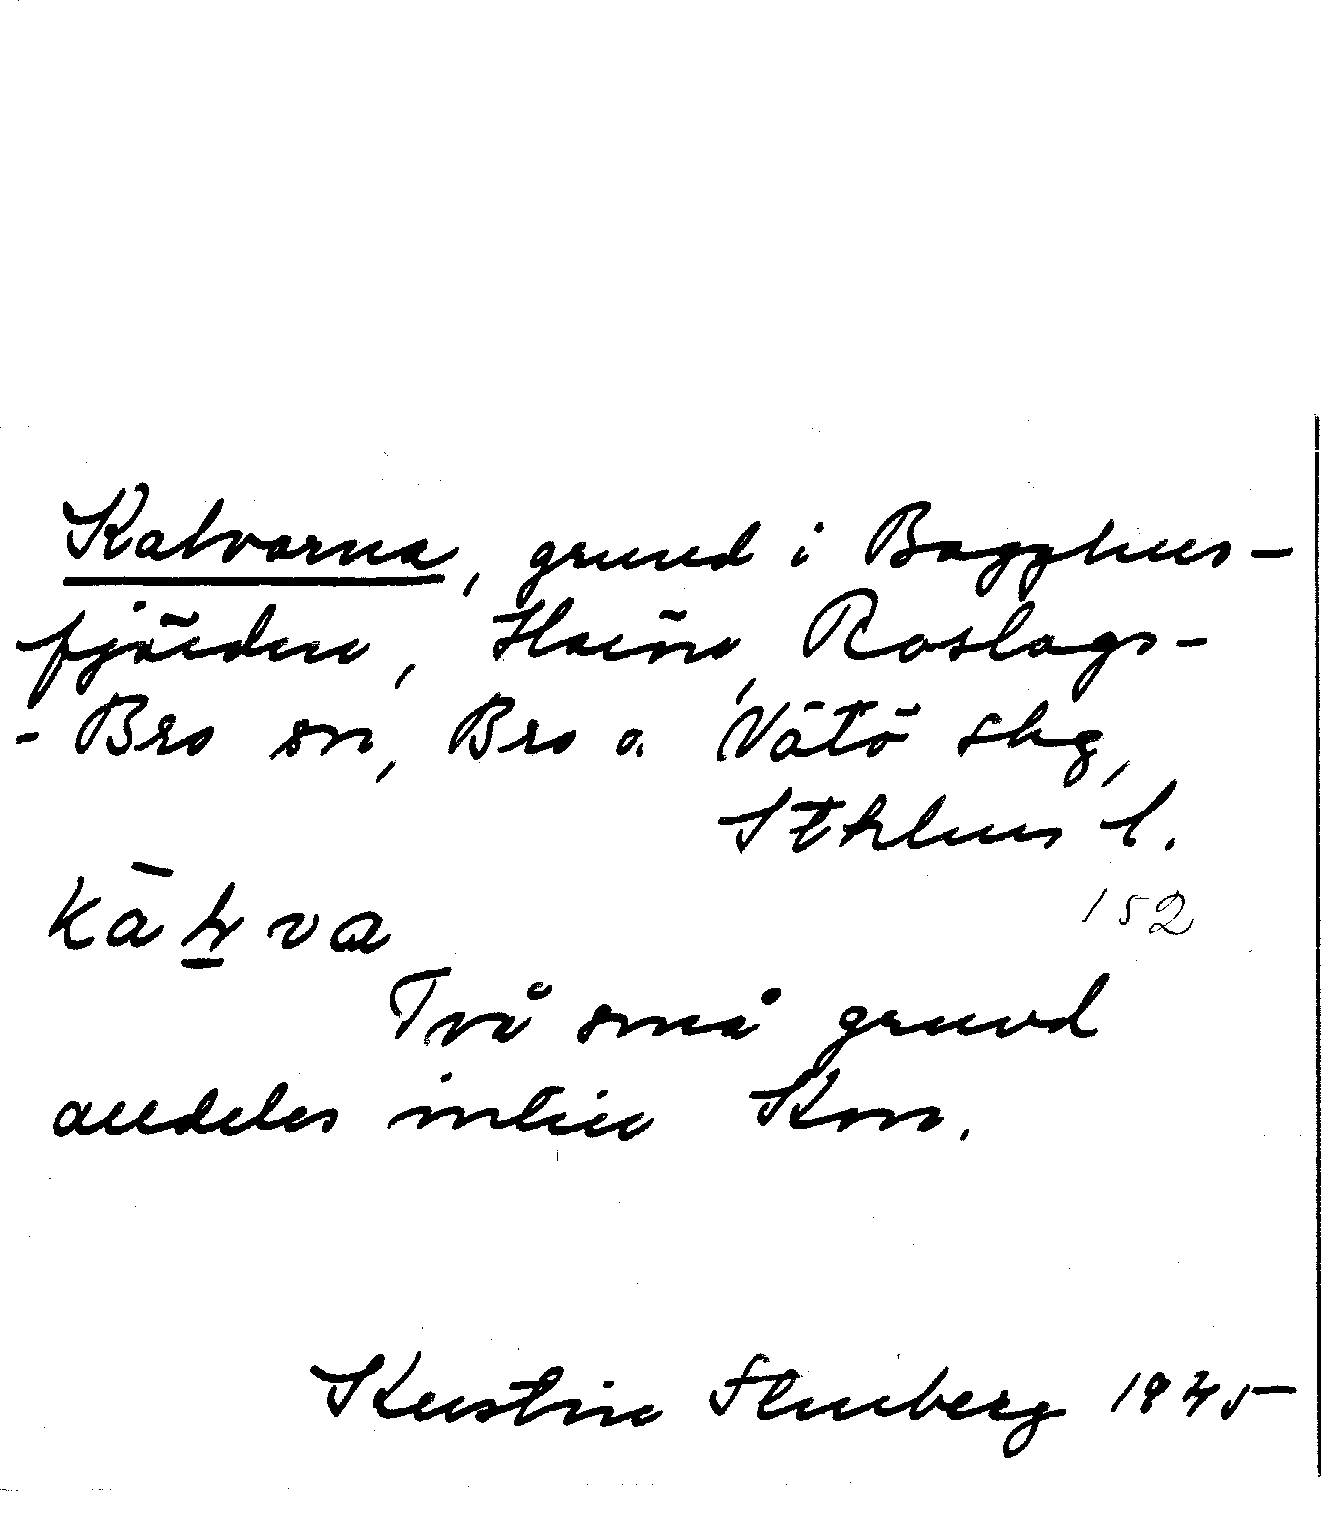 Kalvarna, grund i Bagghus-
fjärden, Roslags-
- Bro sn, Bro o. Vätö skg,
Sthlms l.
152
Två små grund
alldeles intill Kon.
Kerstin Flemberg 1945